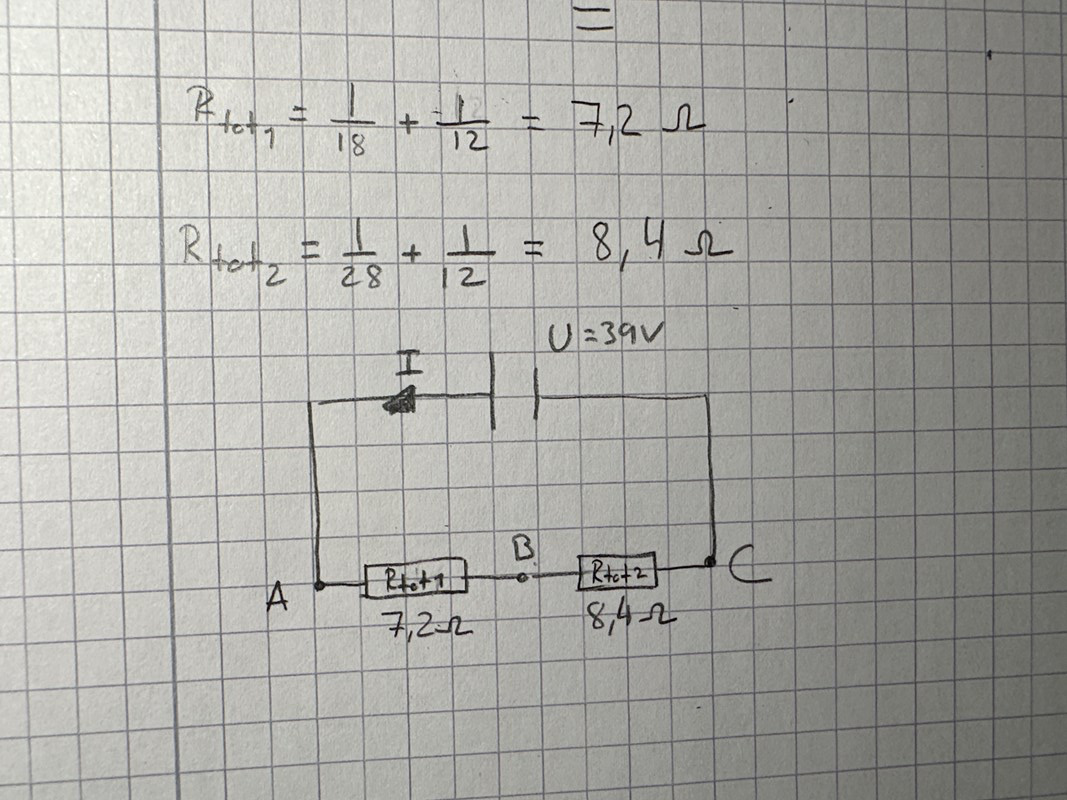 =
R_tot1 = 1/18 + 1/12 = 7,2 Ω
R_tot2 = 1/28 + 1/12 = 8,4 Ω
U = 39V
I
B
A
R_tot1
R_tot2
C
7,2 Ω
8,4 Ω